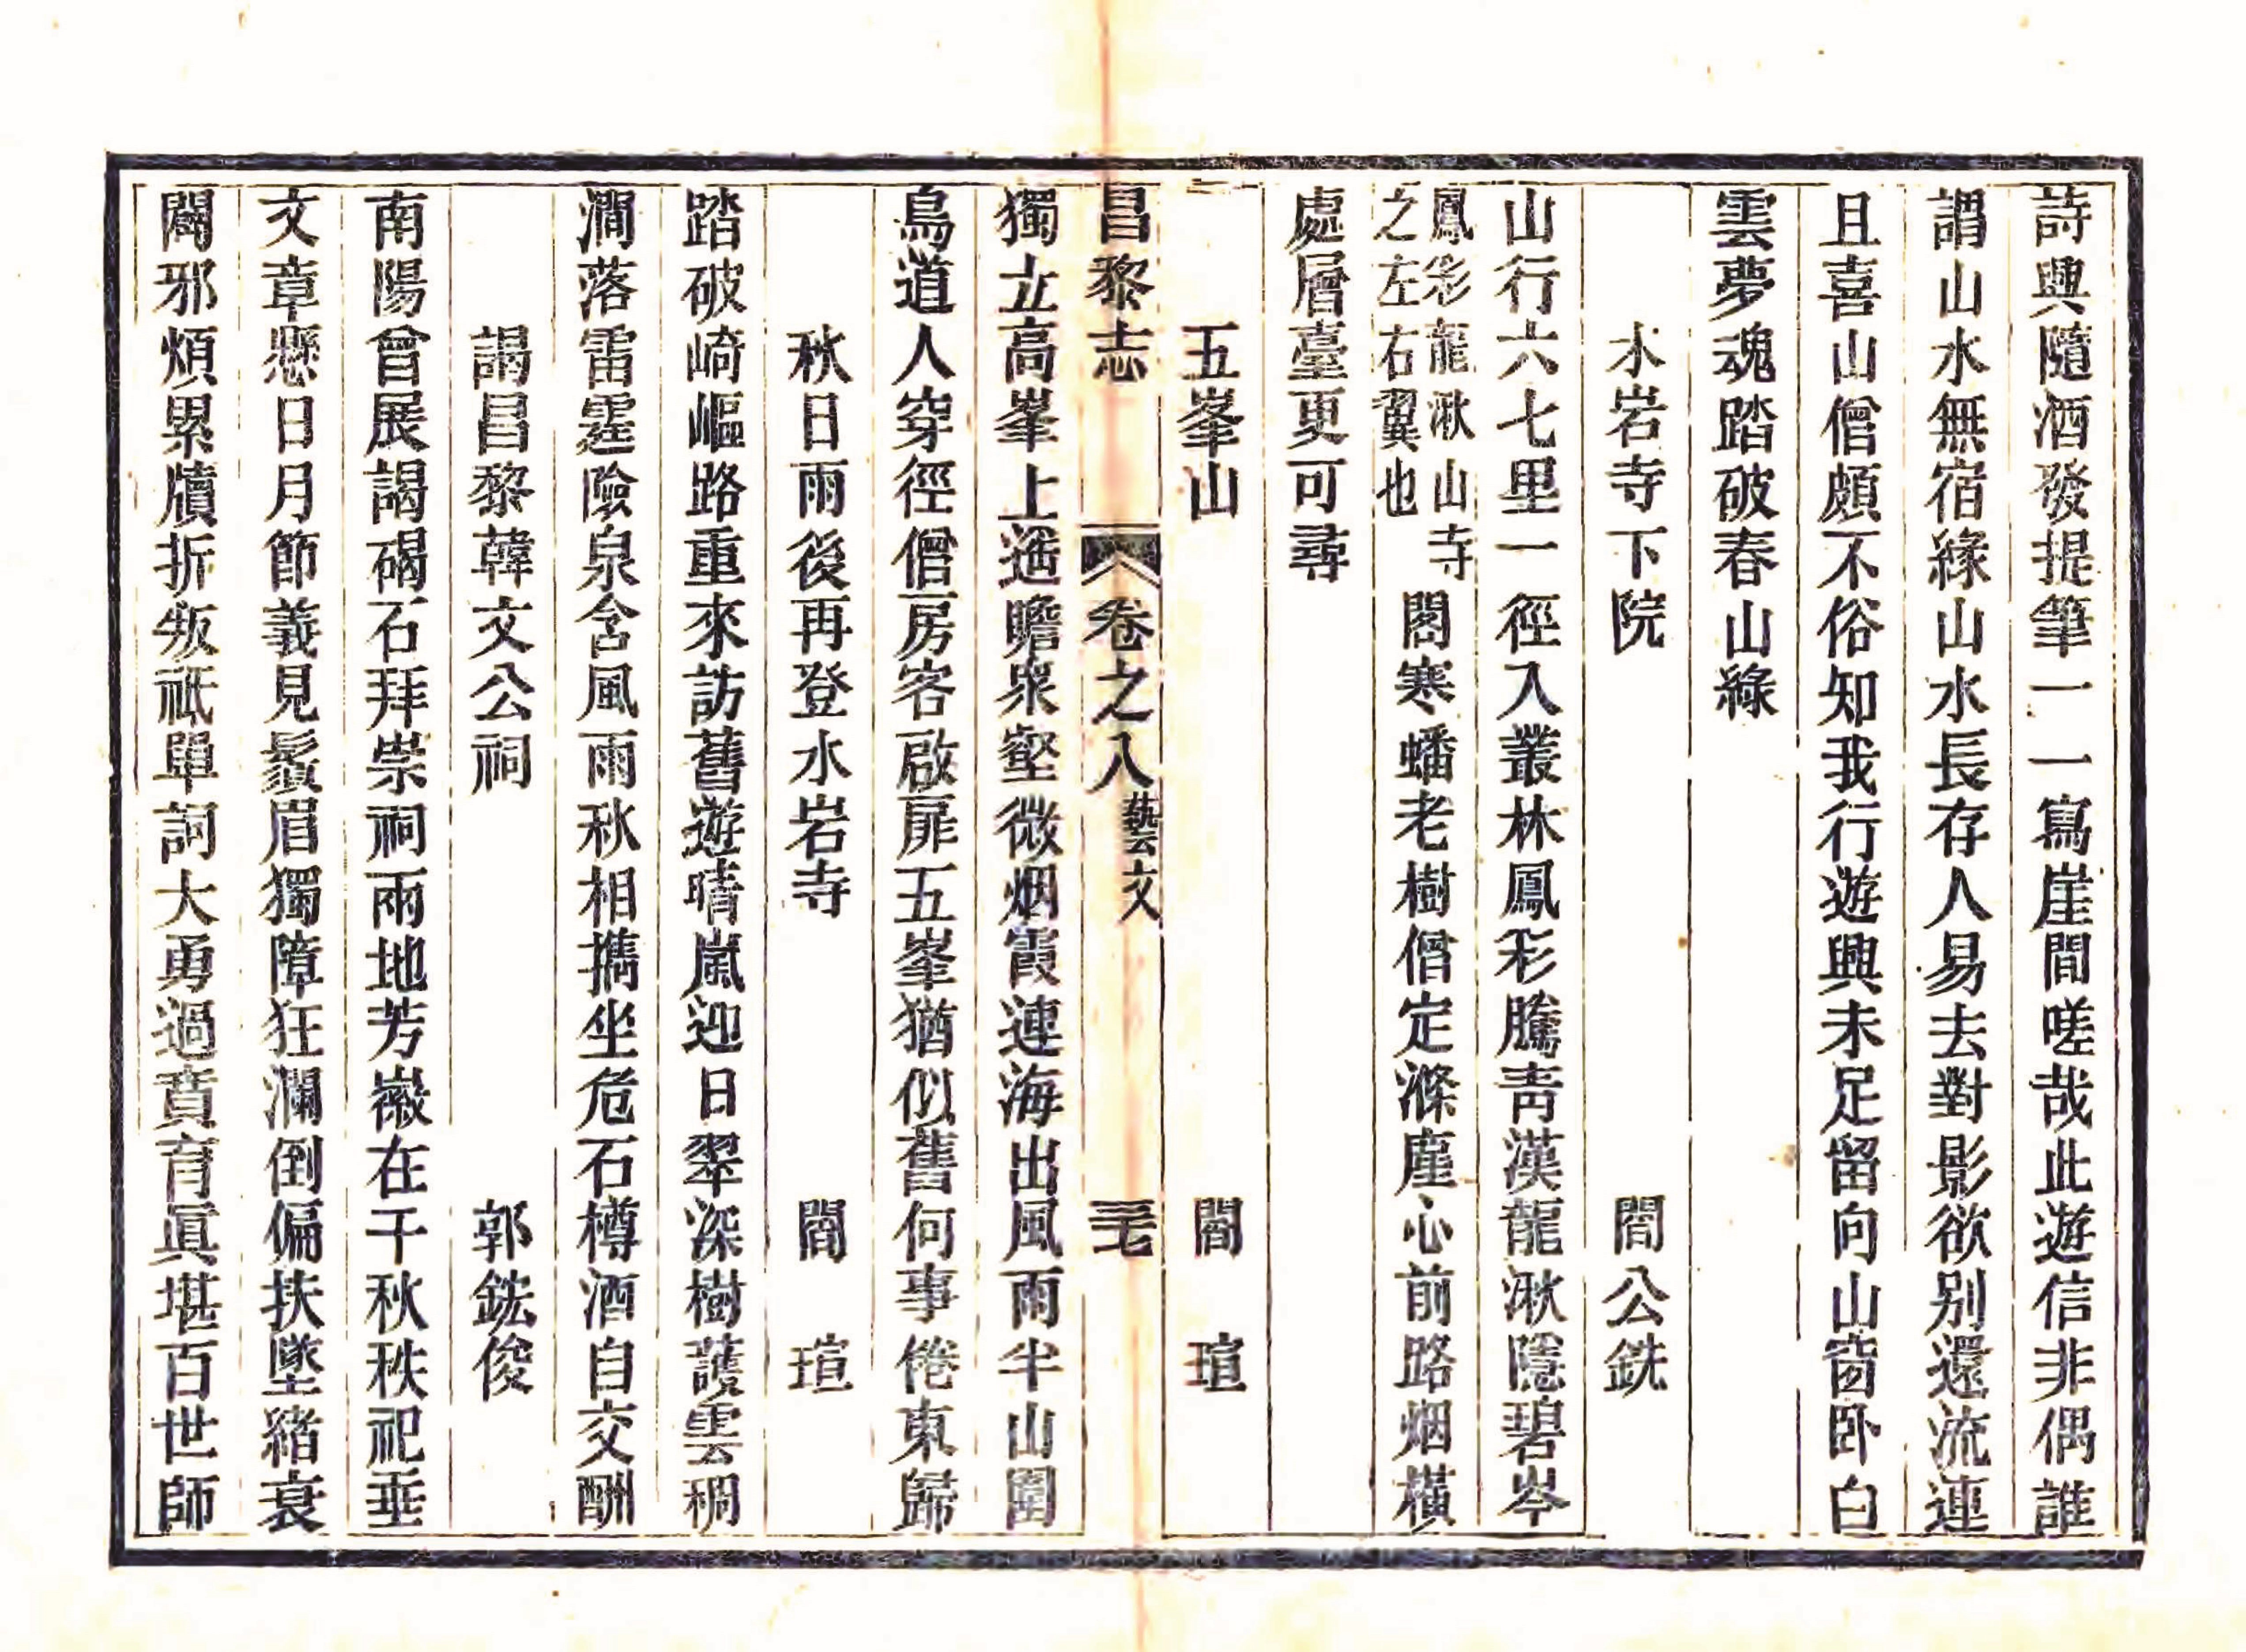 詩興隨酒發提筆一一寫崖間嗟哉此遊信非偶誰
謂山水無宿緣山水長存人易去對影欲别還流連
且喜山僧頗不俗知我行遊興未足留向山窗卧白
雲夢魂踏破春山綠
水岩寺下院　閻公銑
山行六七里一徑入叢林鳳彩騰靑漢龍湫隱碧岑
鳳彩龍湫山寺
之左右翼也
閣寒蟠老樹僧定滌塵心前路烟橫
處層臺更可尋
五峯山　閻瑄
昌黎志　卷之八藝文　毛
獨立高峯上遥瞻衆壑微烟霞連海出風雨半山圍
鳥道人穿徑僧房客啟扉五峯猶似舊何事倦東歸
秋日雨後再登水岩寺　閻瑄
踏破崎嶇路重來訪舊遊晴嵐迎日翠深樹護雲稠
澗落雷霆險泉含風雨秋相攜坐危石樽酒自交酬
謁昌黎韓文公祠　郭鋐俊
南陽曾展謁碣石拜崇祠兩地芳徽在千秋秩祀垂
文章懸日月節義見鬚眉獨障狂瀾倒偏扶墜緒衰
闢邪煩累牘折叛祇單詞大勇過賁育眞堪百世師